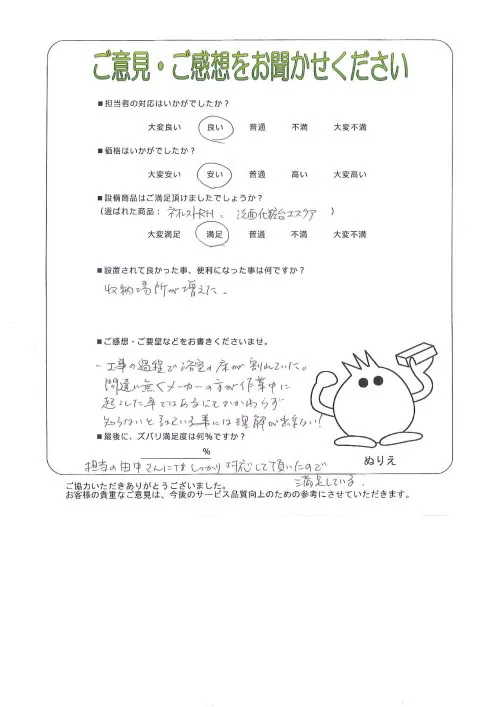 ご意見・ご感想をお聞かせください
■担当者の対応はいかがでしたか？
大変良い 良い 普通 不満 大変不満
■価格はいかがでしたか？
大変安い 安い 普通 高い 大変高い
■設備商品はご満足頂けましたでしょうか？
（選ばれた商品： ネオレストRH、洗面化粧台エスクア ）
大変満足 満足 普通 不満 大変不満
■設置されて良かった事、便利になった事は何ですか？
収納場所が増えた。
■ご感想・ご要望などをお書きくださいませ。
工事の過程で浴室の床が割れていた。
間違い無くメーカーの方が作業中に
起こした事ではあるにもかかわらず
知らないと言っている事には理解が出来ない！
■最後に、ズバリ満足度は何％ですか？
％
担当の田中さんにはしっかり対応して頂いたので
満足しています。
ぬりえ
ご協力いただきありがとうございました。
お客様の貴重なご意見は、今後のサービス品質向上のための参考にさせていただきます。